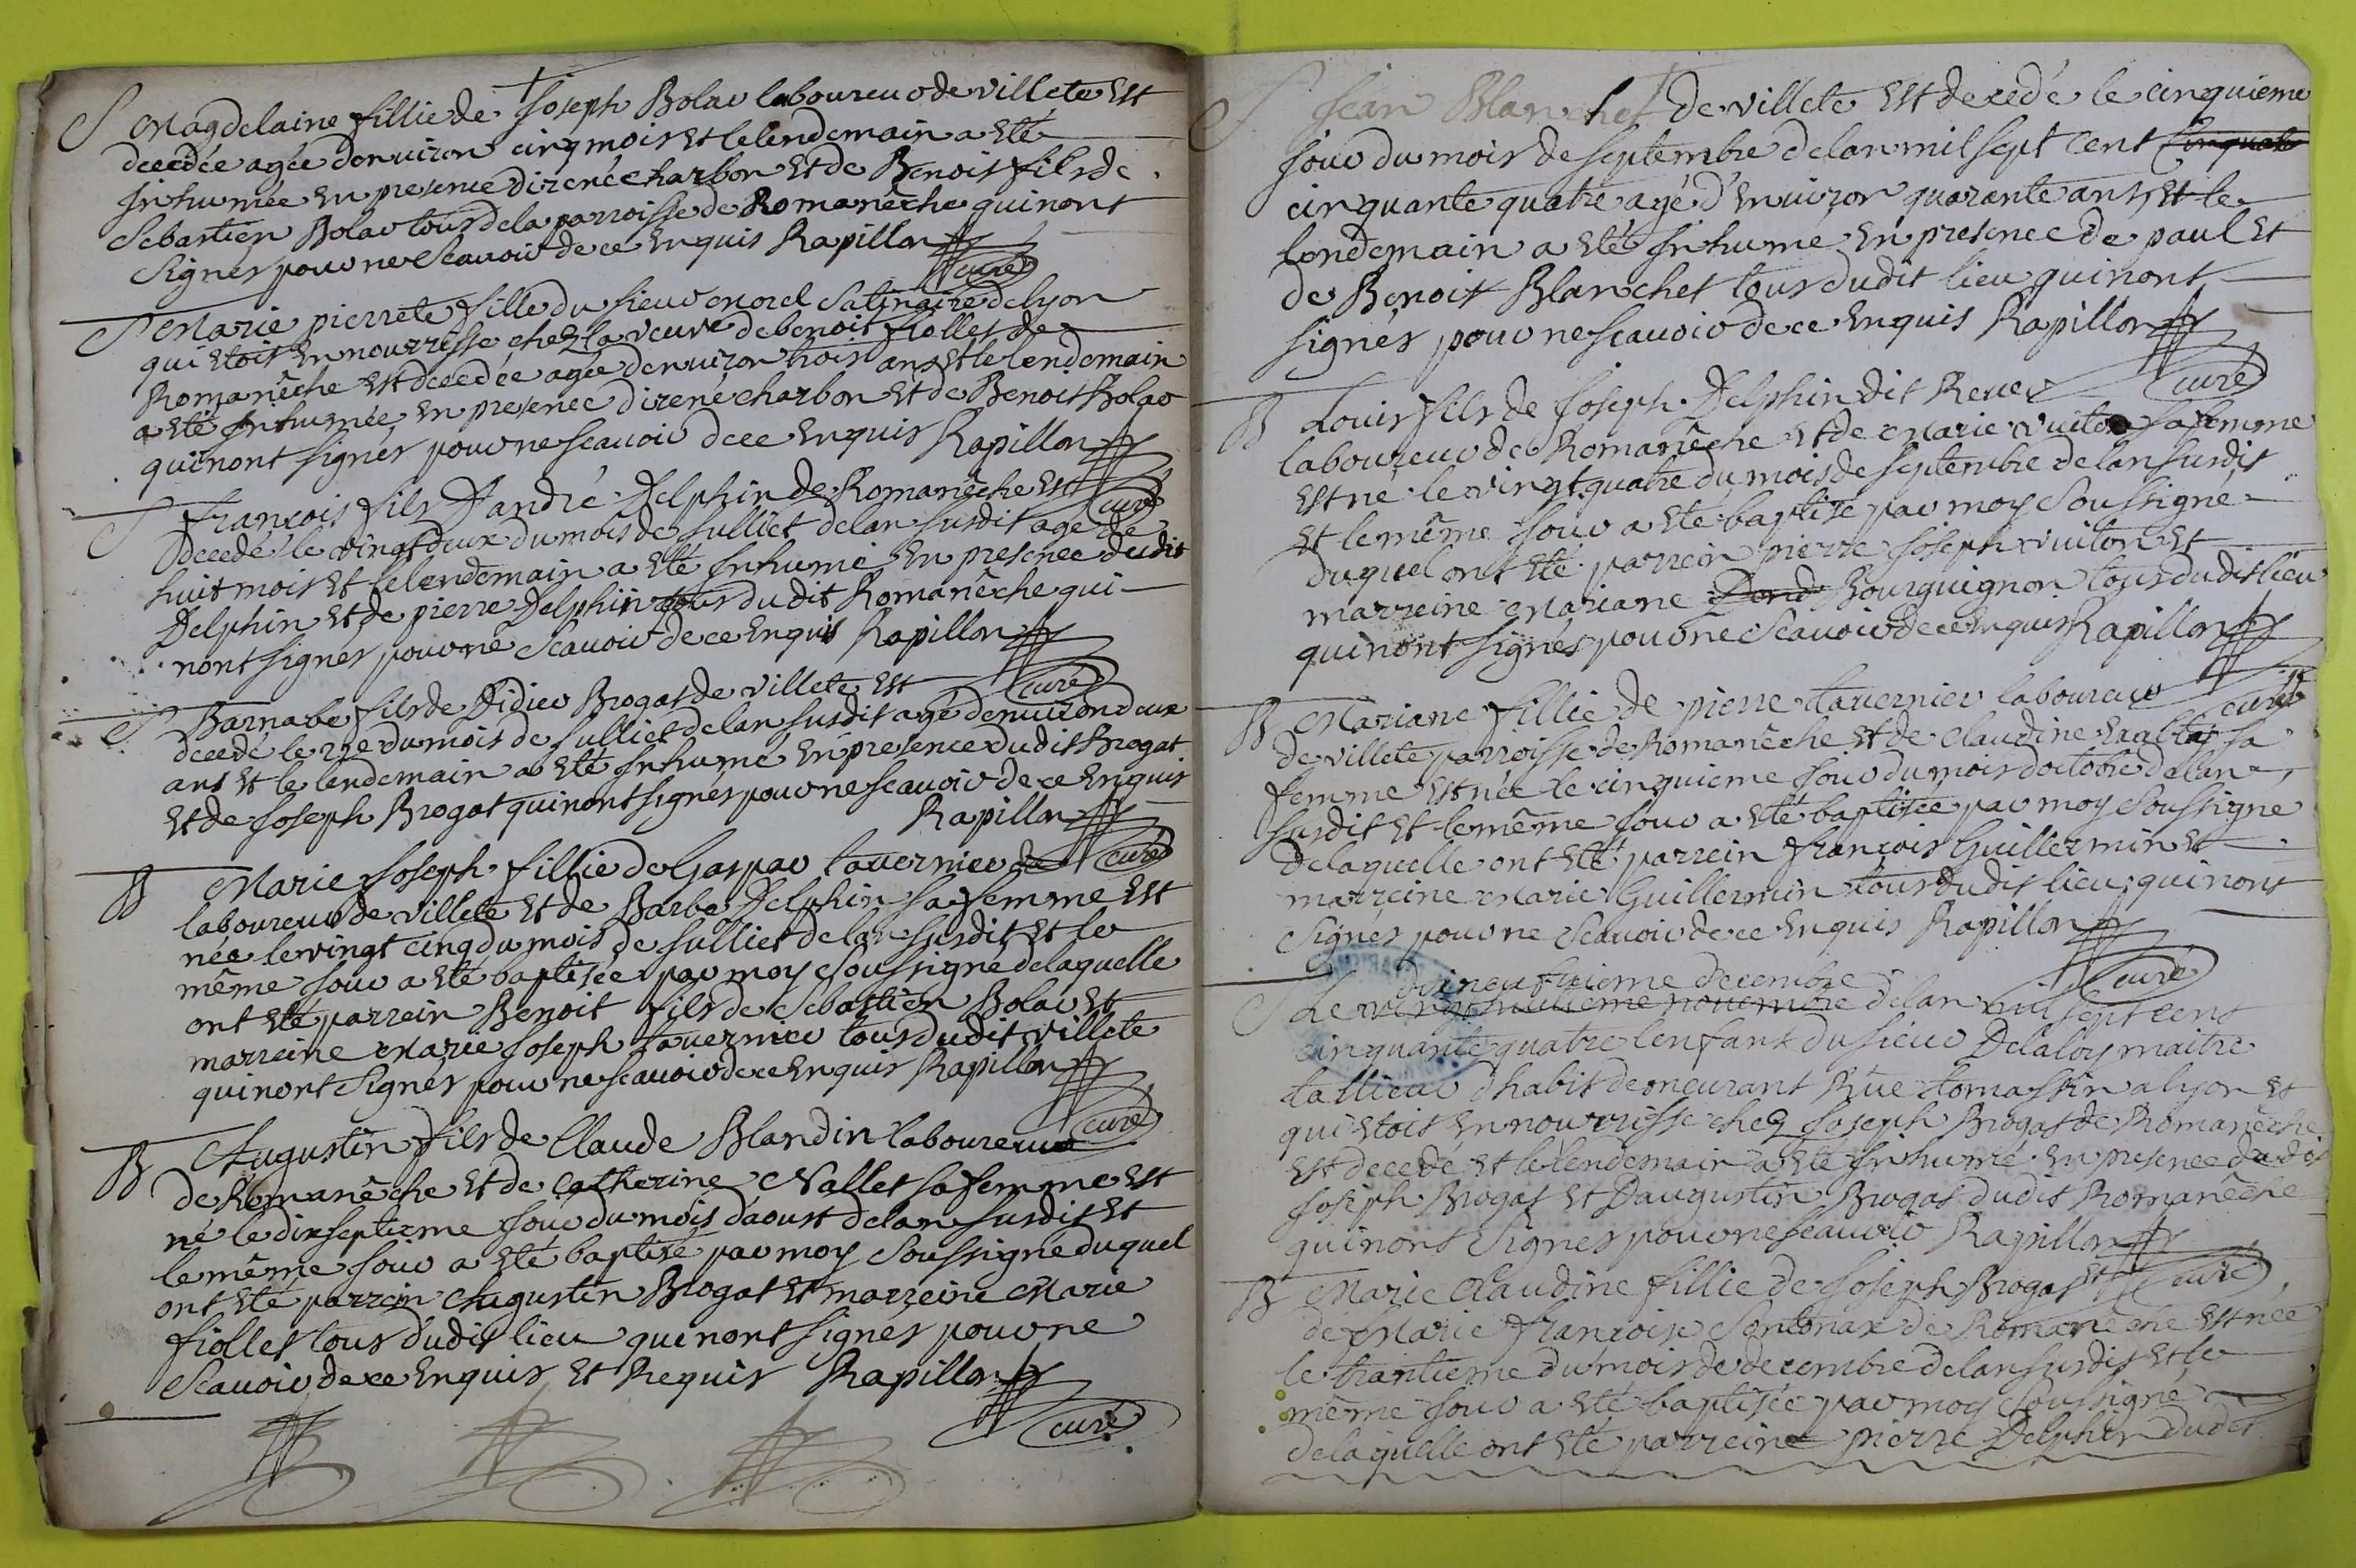 S Magdelaine fillie de Joseph Bolar laboureur de villete Est
decedée agée denviron cinq mois et le lendemain a Eté
Inhumée En presence direné charbon Et de Benoit fils de
Sebastien Bolar tous de la parroisse de Romanêche qui nont
Signés pour ne Scavoir de ce Enquis Rapillon
curé
S Marie pierrete fille du sieur Morel Satinaire de lyon
qui Etoit En nourrisse chez la veuve de benoit fiollet de
Romanêche Est decedée agée denviron trois ans et le lendemain
a Eté Inhumée En presence direné charbon Et de Benoit Bolar
qui nont signés pour ne scavoir de ce Enquis Rapillon
curé
S François fils D'andré Delphin de Romanêche Est
decedé le vingt deux du mois de Julliet de lan susdit agé de
huit mois Et le lendemain a Eté Inhumé En presence dudit
Delphin Et de pierre Delphin tous dudit Romanêche qui
nont signés pour ne Scavoir de ce Enquis Rapillon
curé
S Barnabé fils de Didier Brogat de villete Est
decedé le 27e du mois de Julliet de lan susdit agé denviron deux
ans Et le lendemain a Eté Inhumé En presence dudit Brogat
Et de Joseph Brogat qui nont signés pour ne scavoir de ce Enquis
Rapillon
curé
B Marie Joseph fillie de Gaspar tavernier
laboureur de villete Et de Barbe Delphin sa femme Est
née le vingt cinq du mois de Julliet de lan susdit et le
même jour a Eté baptisée par moy Soussigné de laquelle
ont Eté parrein Benoit fils de Sebastien Bolar Et
marreine Marie Joseph tavernier tous dudit villete
qui nont Signés pour ne scavoir de ce Enquis Rapillon
curé
B Augustin fils de Claude Blandin laboureur
de Romanêche Et de Catherine Nallet sa femme Est
né le dixseptieme jour du mois daoust de lan susdit Et
le même jour a Eté baptisé par moy Soussigné duquel
ont Eté parrein Augustin Brogat Et marreine Marie
fiollet tous dudit lieu qui nont signés pour ne
Scavoir de ce Enquis Et Requis Rapillon
curé
S Jean Blanchet de villete Est decedé le cinquieme
jour du mois de septembre de lan mil sept cent cinquante
cinquante quatre agé d'Environ quarante ans Et le
lendemain a Eté Inhumé En presence de paul Et
de Benoit Blanchet tous dudit lieu qui nont
signés pour ne scavoir de ce Enquis Rapillon
curé
B Louis fils de Joseph Delphin dit
laboureur de Romanêche Et de Marie vuiton sa femme
Est né le vingt quatre du mois de septembre de lan susdit
Et le même jour a Eté baptisé par moy Soussigné
duquel ont Eté parrein pierre Joseph vuiton Et
marreine Mariane Bourguignon tous dudit lieu
qui nont signés pour ne Scavoir de ce Enquis Rapillon
curé
B Mariane fillie de pierre tavernier laboureur
de villete parroisse de Romanêche Et de Claudine sa
femme Est née le cinquieme jour du mois doctobre de lan
susdit Et le même jour a Eté baptisée par moy Soussigné
de laquelle ont Eté parrein François Guillermin Et
marreine Marie Guillermin tous dudit lieu qui nont
Signés pour ne Scavoir de ce Enquis Rapillon
curé
dixneufvieme decembre
S Le vingt huitieme novembre de lan mil sept cent
cinquante quatre lenfant du sieur Delaloy maitre
tallieur dhabit demeurant Rüe tomassin a lyon Et
qui Etoit En nourrisse chez Joseph Brogat de Romanêche
Est decedé Et le lendemain a Eté Inhumé En presence dudit
Joseph Brogat Et Daugustin Brogat dudit Romanêche
qui nont Signés pour ne scavoir Rapillon
curé
B Marie Claudine fillie de Joseph Brogat Et
de Marie Françoise Sontonax de Romaneche Est née
le trantieme du mois de decembre de lan susdit et le
même jour a Eté baptisée par moy Soussigné
de laquelle ont Eté parreine pierre Delphin dudit